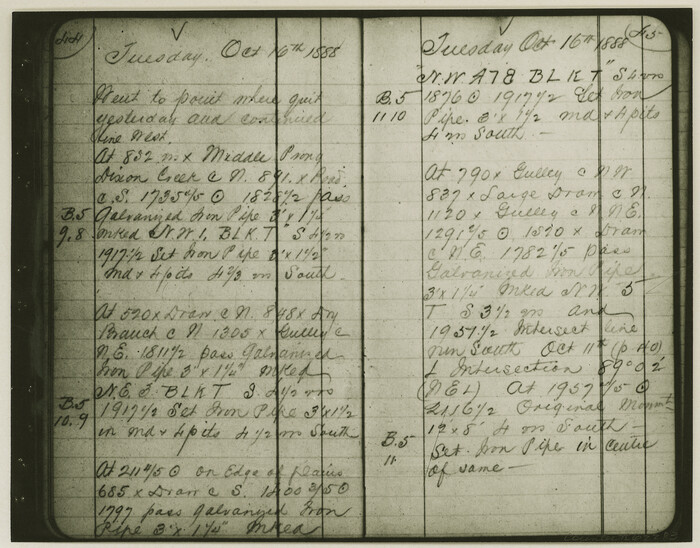 44
Tuesday. Oct 16th 1888
Went to point where quit
yesterday and continued
line West.
At 832 m x Middle Prong
Dixon Creek c N. 891. x Road.
c.S. 1735 4/5 ⊙ 1828 1/2 pass
B.5 Galvanized Iron Pipe 3' x 1 1/4"
9,8. mked N.W 1. BLKT " S 4 1/2 m
1917 1/2 Set Iron Pipe 3' x 1 1/2"
md & 4 pits 4 2/3 m South.
At 520 x Draw c N. 848 x Dry
Branch c N. 1305 x Gulley c
N.E. 1811 1/2 pass Galvanized
Iron Pipe 3' x 1 1/4" mked
N.E 3. BLKT S. 4 1/2 m
B.5 1917 1/2 Set Iron Pipe 3' x 1 1/2
10.9 in md & 4 pits 4 1/2 m South
At 211 4/5 ⊙ on Edge of plains
685 x Draw c S. 1400 3/5 ⊙
1797 pass galvanized Iron
Pipe 3' x 1 1/4" Mked
45
Tuesday Oct 16th 1888
"N.W A78 BLKT" S 4 m
B.5 1876 ⊙ 1917 1/2 Set Iron
11 10 Pipe. 3' x 1 1/2 md & 4 pits
4 m South. —
At 790 x Gulley c N W.
837 x Large Draw c N.
1120 x Gulley c N N E.
1291 4/5 ⊙ 1520 x Draw
c N.E. 1782 4/5 pass
Galvanized Iron Pipe
3' x 1 1/4" Mked N.W 5
T S 3 1/2 m and
1957 1/2 Intersect line
run South Oct 11th (p 40)
L Intersection 89° 02'
(N E L) At 1957 4/5 ⊙
2116 1/2 Original Monmt
12 x 8' 4 m South —
B.5 Set Iron Pipe in Centre
11 of same —